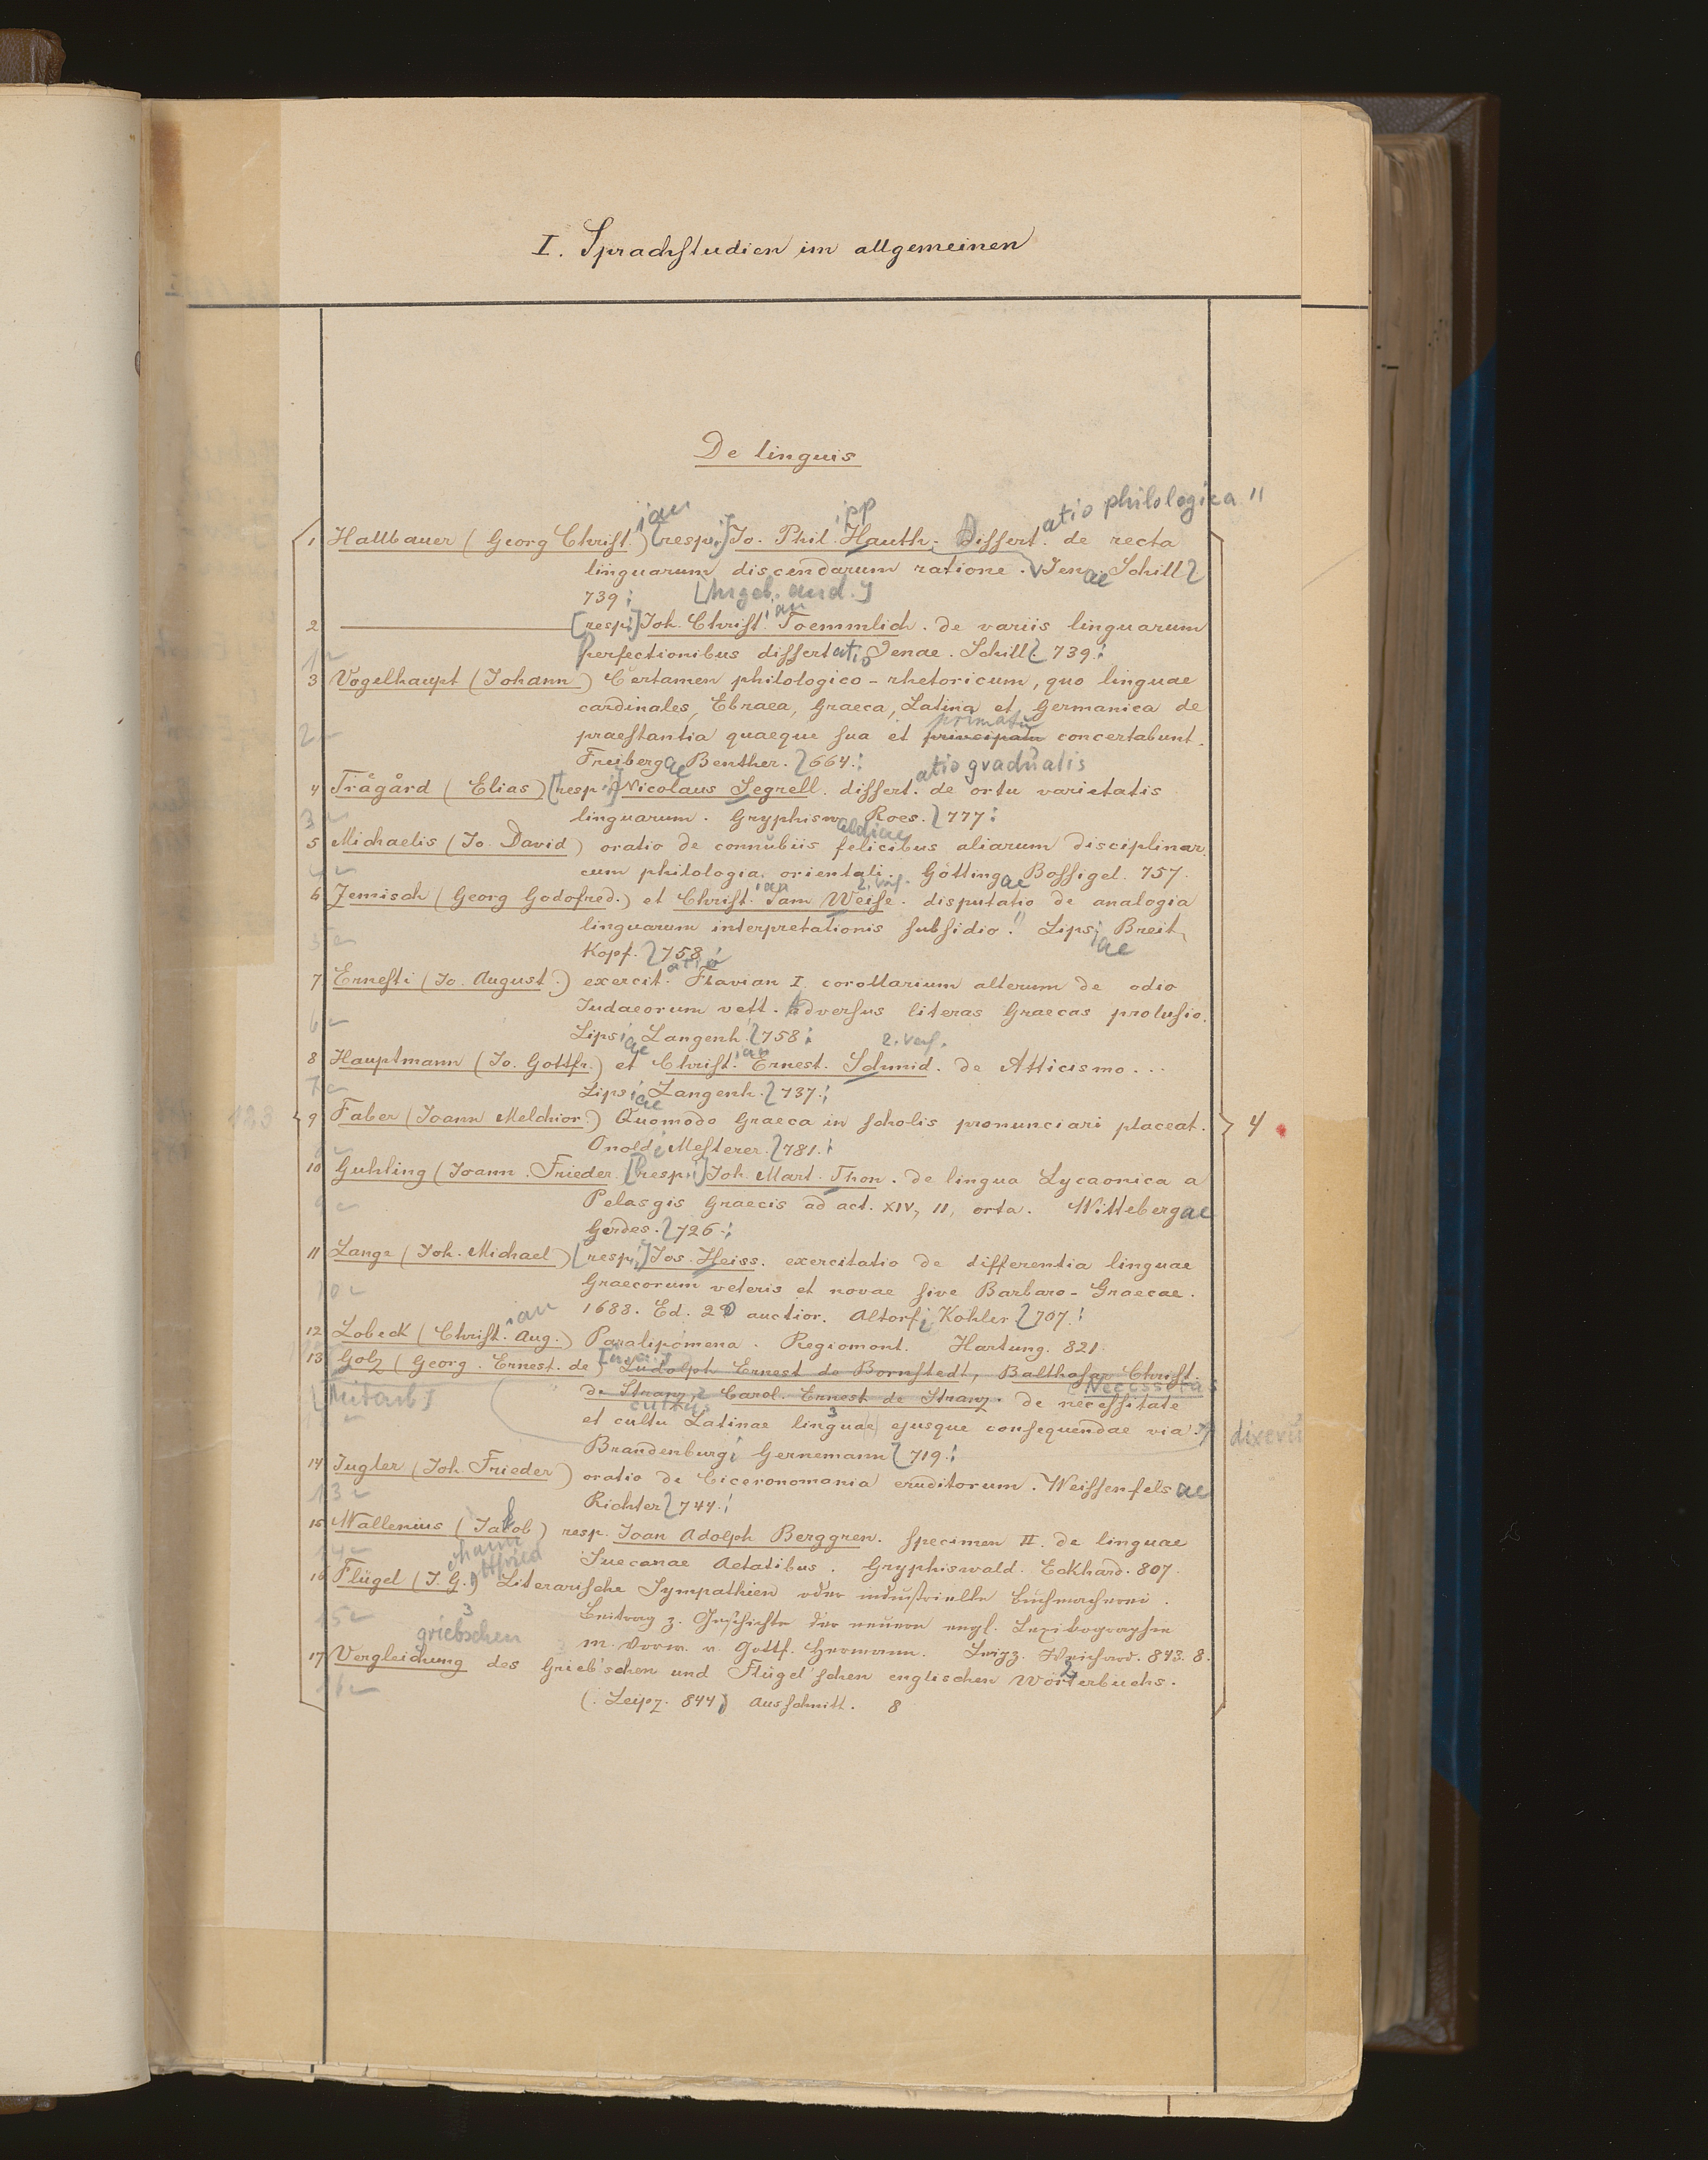 I. Sprachstudien im allgemeinen
De linguis
atio philologica "
ian
ipp
1 Hallbauer (Georg Christ.) [resp.:] Io. Phil. Hauth. Dissert. de recta
linguarum discendarum ratione. Ienae Schill
739
2 [resp:] Joh. Christ. Toemmlich. de variis linguarum
ian
perfectionibus dissertatio Ienae. Schill 739.
1
3 Vogelhaupt (Johann) Certamen philologico-rhetoricum, quo linguae
cardinales, Ebraea, Graeca, Latina et Germanica de
primatu
2 praestantia quaeque sua et principatu concertabunt.
Freibergae Benther. 664.
atio gradualis
4 Trågård (Elias) [resp:] Nicolaus Segrell. dissert. de ortu varietatis
3 linguarum. Gryphiswaldiae Roes. 777
5 Michaelis (Io. David) oratio de connubiis felicibus aliarum disciplinar.
4 cum philologia orientali. Göttingae Bossigel. 757.
ian 2. Verf.
6 Jemisch (Georg Godofred.) et Christ. Sam Weise. disputatio de analogia
5 linguarum interpretationis subsidio. Lipsiae Breit,
Kopf. 758
atio
7 Ernesti (Io. August.) exercit. Flavian I. corollarium alterum de odio
Iudaeorum vett. adversus literas Graecas prolusio.
6
Lipsiae Langenh. 758
ian 2. Verf.
8 Hauptmann (Io. Gottfr.) et Christ. Ernest. Schmid. de Atticismo...
7 Lipsiae Langenh. 737.
123
9 Faber (Joann Melchior.) Quomodo Graeca in scholis pronunciari placeat.
4
Onoldi Messerer. 781.
10 Guhling (Joann. Frieder. [resp:] Joh. Mart. Thon. de lingua Lycaonica a
9 Pelasgis Graecis ad act. XIV, 11, orta. Wittebergae
Gerdes. 726.
11 Lange (Joh. Michael) [resp:] Jos. Heiss. exercitatio de differentia linguae
10 Graecorum veteris et novae sive Barbaro-Graecae.
1688. Ed. 2 auctior. Altorfi Kohler 707.
ian
12 Lobeck (Christ. Aug.) Paralipomena. Regiomont. Hartung. 821.
13 Golz (Georg. Ernest. de) Ludolph Ernest de Bornstedt, Balthasar Christ.
Necessitas
[Mitarb] de Stranz, Carol. Ernest de Stranz. de necessitate
cultus 3
et cultu Latinae linguae ejusque consequendae via.
dixeru
Brandenburgi Gernemann 719.
14 Jugler (Joh. Frieder) oratio de Ciceronomania eruditorum. Weissenfelsae
13 Richter 744.
15 Wallenius (Jakob) resp. Joan Adolph Berggren. Specimen II. de linguae
14 Suecanae Aetatibus. Gryphiswald. Eckhard. 807.
hann ttfried
16 Flügel (J. G.) Literarische Sympathien oder industrielle Buchmacherei.
15 Beitrag z. Geschichte der neuern engl. Lexikographie
3
griebschen m. Vorw. v. Gottf. Hermann. Leipz. Weichard. 843. 8.
2
17 Vergleichung des Grieb'schen und Flügel'schen englischen Wörterbuchs.
16
(. Leipz. 844) Ausschnitt. 8